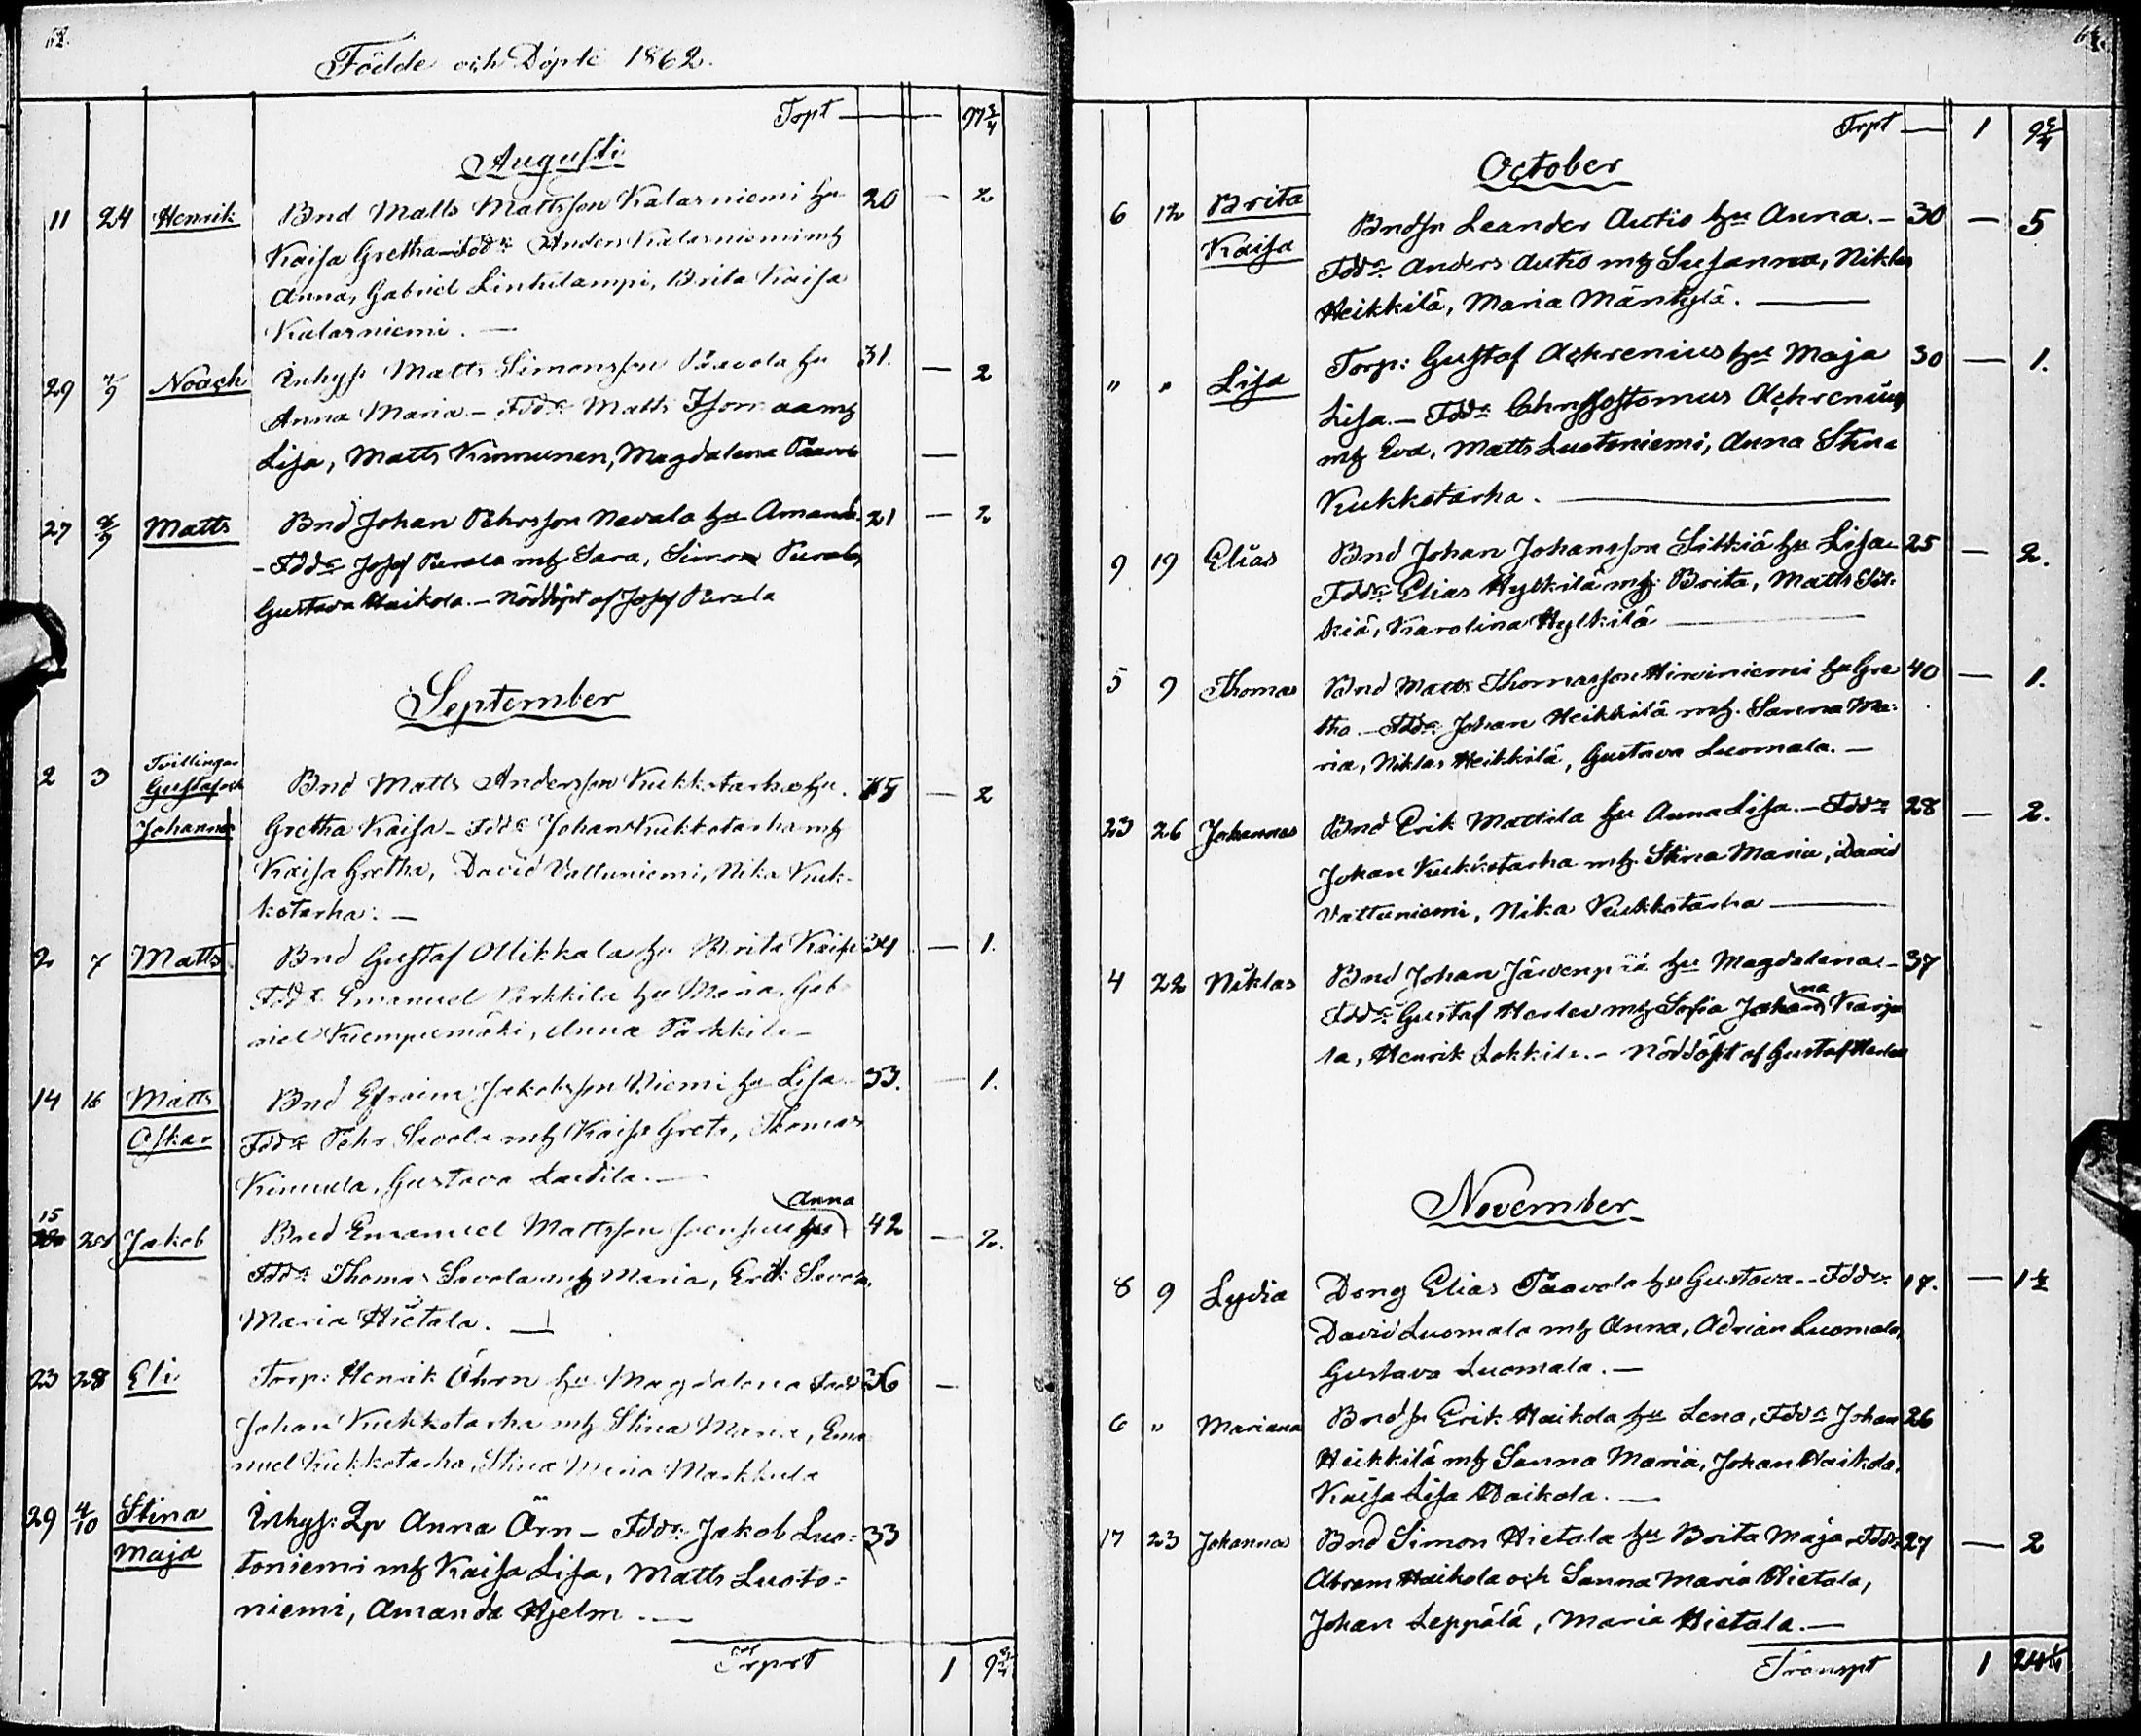 Födde och Döpte 1862.
Trpt — — 97 3/4
Augusti
11 24 Henrik Bnd Matts Mattsson Kalasniemi hu 20 — 2
Kaisa Gretha – Fdd: Anders Kalasniemi mh
Anna, Gabriel Lintulampi, Brita Kaisa
Kalasniemi. —
29 7/9 Noach Inhys Matts Simonsson Paavola hu 31. — 2
Anna Maria – Fdd: Matts Isomaa mh
Lisa, Matts Kinnunen, Magdalena Paavola —
27 8/9 Matts Bnd Johan Pehrsson Navala hu Amanda 21 — 2
– Fdd: Josef Purola mh Sara, Simon Purola,
Gustava Haikola. – Nöddöpt af Josef Purola
September
Tvillingar
2 3 Gustaf och Bnd Matts Andersson Kukkotarha hu. — 2
Johannes Gretha Kaisa – Fdd: Johan Kukkotarha mh
Kaisa Gretha, David Vattuniemi, Nika Kuk-
kotarha. —
2 7 Matts Bnd Gustaf Ollikkala hu Brita Kaisa 34 — 1.
Fdd: Emanuel Parkkila hu Maria, Gab
riel Kiempumäki, Anna Parkkila –
14 16 Matts Bnd Efraim Jakobsson Niemi hu Lisa 33. — 1.
Oskar Fdd: Pehr Savola mh Kaisa Greta, Thomas
Kinnula, Gustava Lastila. —
15 Anna
20 Jakob Bnd Emanuel Mattsson hu 42 — 2.
Fdd: Thomas Savola mh Maria, Erik Savola,
Maria Hietala. —
23 28 Eli Torp: Henrik Öhrn hu Magdalena Fadd 36 —
Johan Kukkotarha mh Stina Maria, Ema
nuel Kukkotarha, Stina Maria Markkula
29 4/10 Stina Inhys: Qp Anna Örn – Fdd: Jakob Luo= 33
Maja toniemi mh Kaisa Lisa, Matts Luoto=
niemi, Amanda Hjelm. —
Trprt 1 9 3/4
Trpt — 1 9 3/4
October
6 12 Brita Bndsn Leander Autio hu Anna. – 30 — 5
Kaisa Fdd: Anders Autio mh Susanna, Niklas
Heikkilä, Maria Mäntylä. —
" " Lisa Torp: Gustaf Achrenius hu Maja 30 — 1.
Lisa. – Fdd: Chrysostomus Achrenius
mh Eva, Matts Luotoniemi, Anna Stina
Kukkotarha. —
9 19 Elias Bnd Johan Johansson Sitkiä hu Lisa – 25 — 2.
Fdd: Elias Hylkilä mh. Brita, Matts Sit-
kiä, Karolina Hylkilä —
5 9 Thomas Bnd Matts Thomasson Hirviniemi hu Gre 40 — 1.
tha. – Fdd: Johan Heikkilä mh. Sanna Ma-
ria, Niklas Heikkilä, Gustava Luomala. —
23 26 Johannes Bnd Erik Mattila hu Anna Lisa. – Fdd: 28 — 2.
Johan Kukkotarha mh. Stina Maria, David
Vattuniemi, Nika Kukkotarha —
4 22 Niklas Bnd Johan Järvenpää hu Magdalena – 37
Fdd: Gustaf Herlev mh Sofia Johanna Karju
la, Henrik Lokkila. – Nöddöpt af Gustaf Herlev
November
8 9 Lydia Dreng Elias Paavola hu Gustava. – Fdd: 17. — 1 1/2
David Luomala mh Anna, Adrian Luomala,
Gustava Luomala. —
6 " Mariana Bndsn Erik Haikola hu Lena, Fdd: Johan 26
Heikkilä mh Sanna Maria, Johan Haikola,
Kaisa Lisa Haikola. —
17 23 Johanna Bnd Simon Hietala hu Brita Maja – Fdd: 27 — 2
Abram Haikola och Sanna Maria Hietala,
Johan Leppälä, Maria Hietala. —
Transpt 1 24 1/4